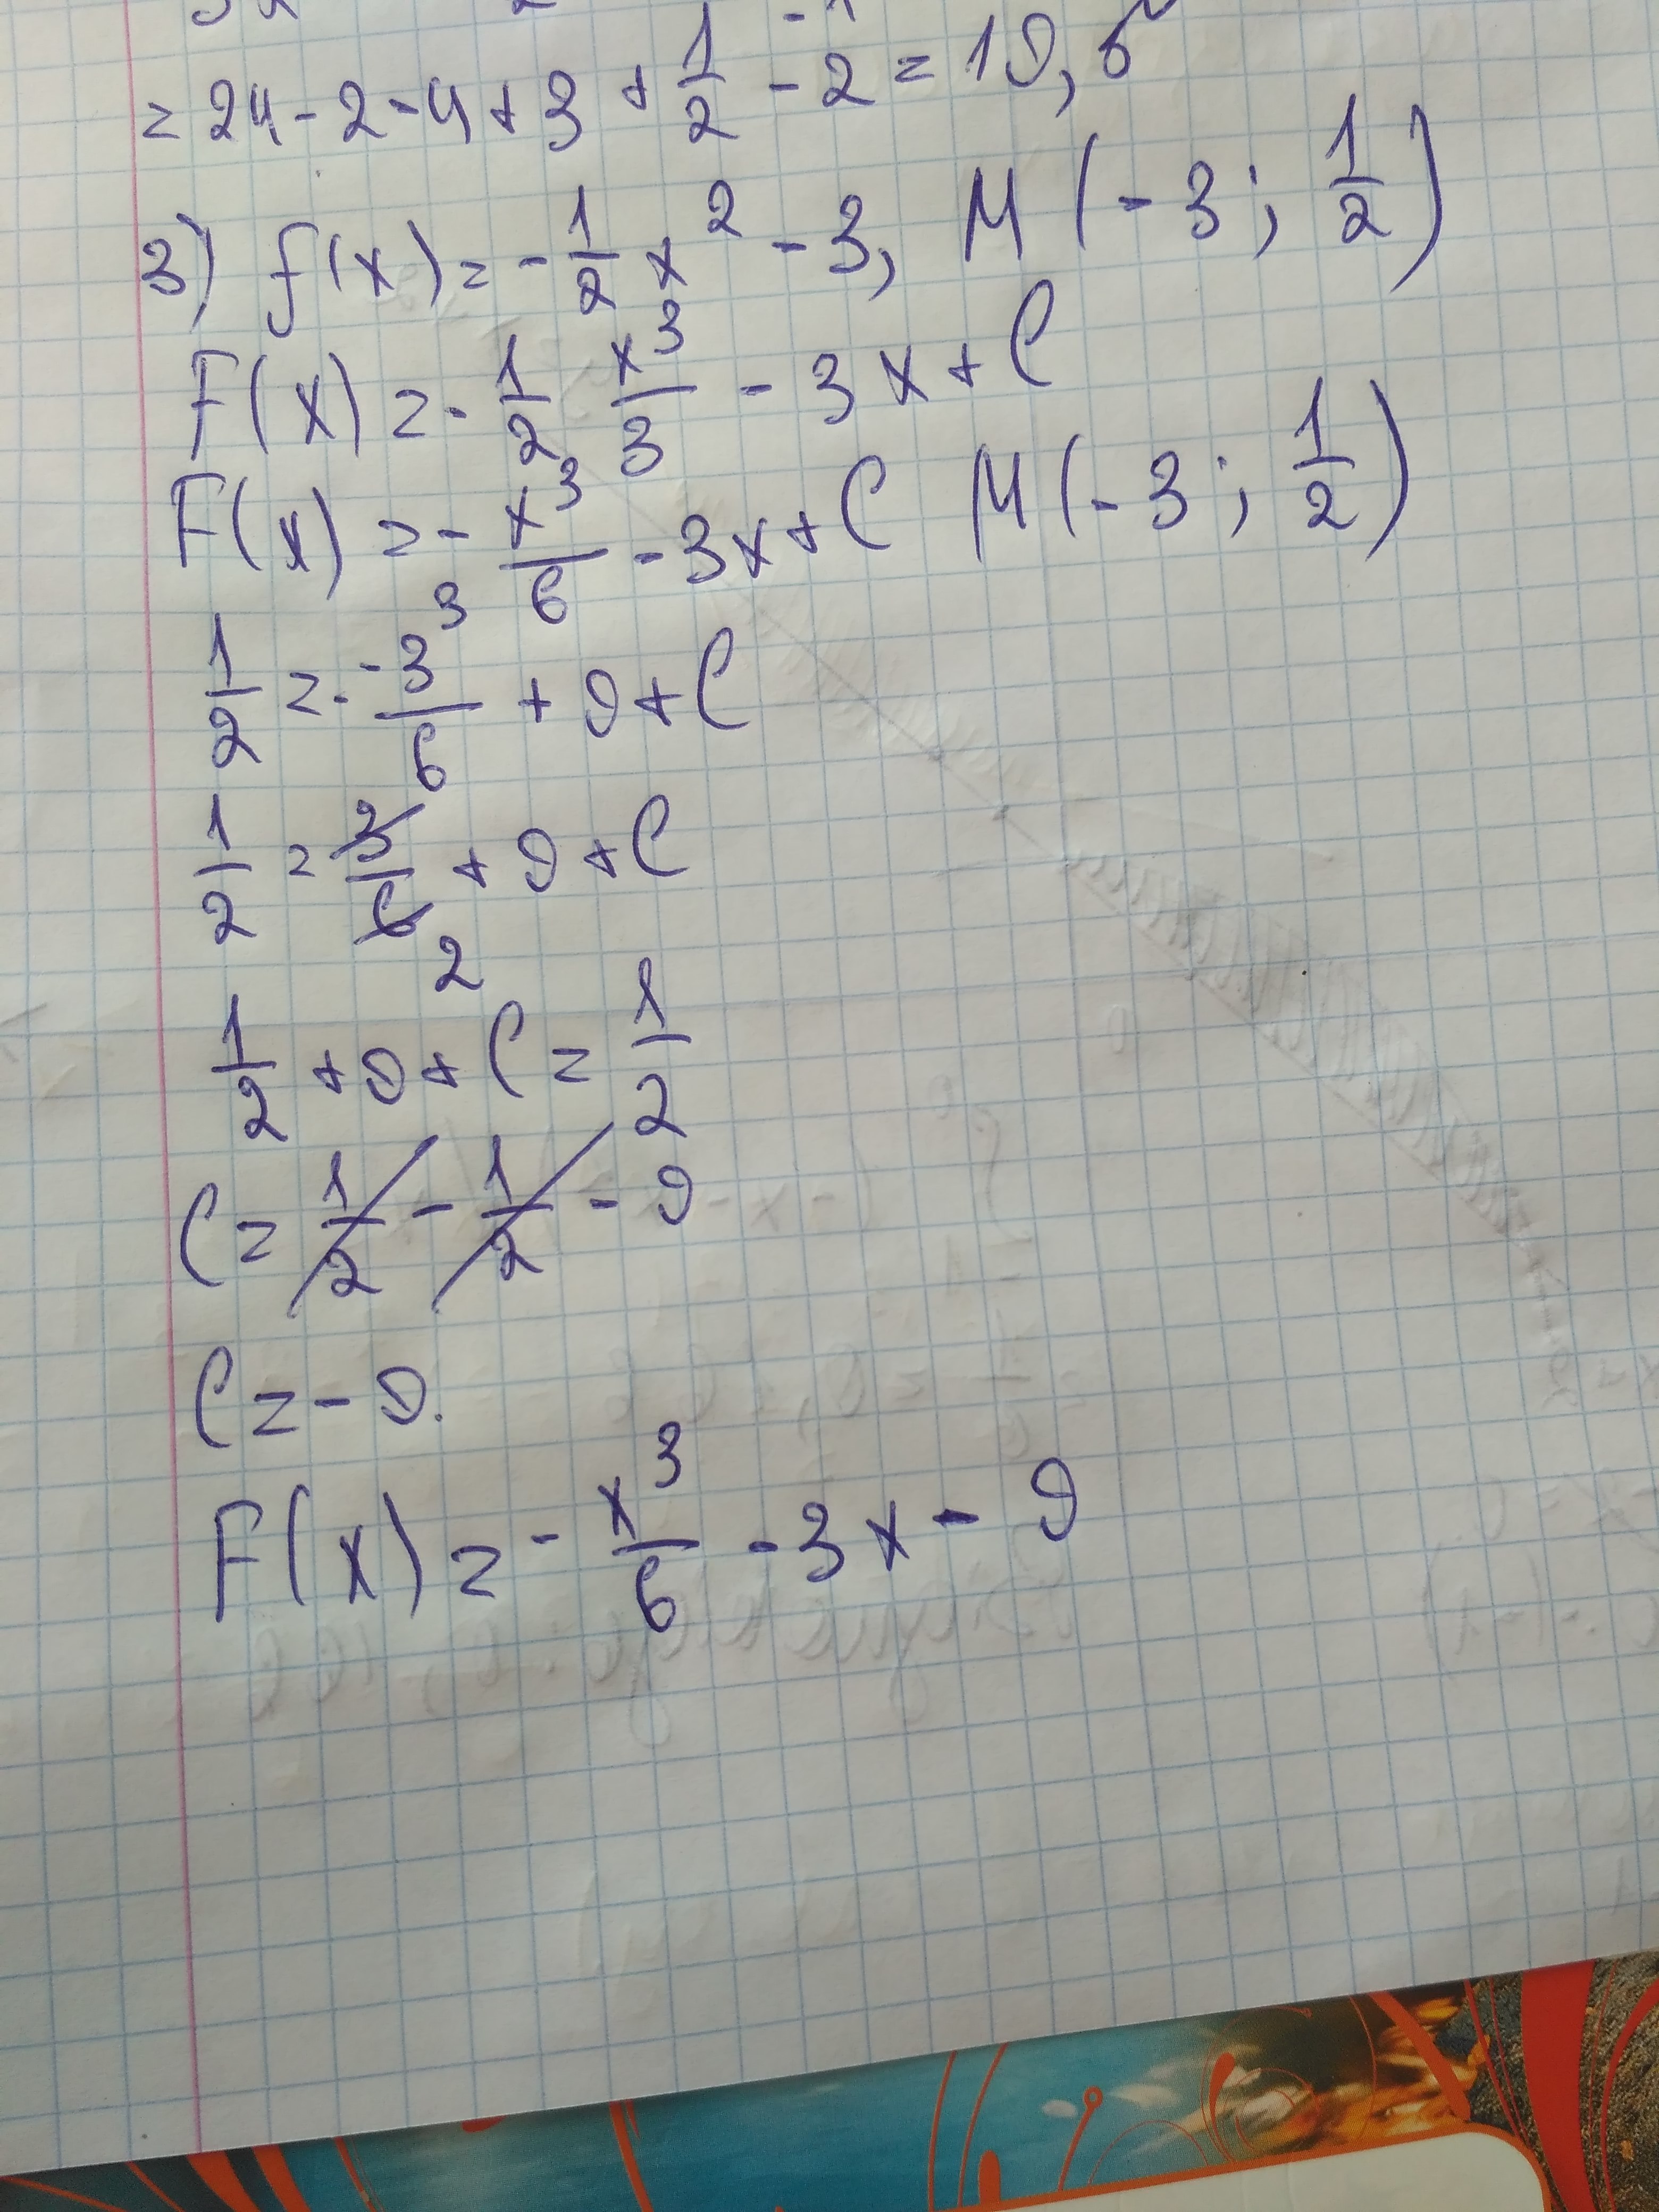 = 24 - 2 - 4 + 3 + 1/2 - 2 = 19,5
3) f(x) = -1/2 x² - 3, M (-3; 1/2)
F(x) = -1/2 x³/3 - 3x + C
F(x) = -x³/6 - 3x + C M(-3; 1/2)
1/2 = - -3³/6 + 9 + C
1/2 = 3/6 + 9 + C
2
1/2 + 9 + C = 1/2
C = 1/2 - 1/2 - 9
C = -9.
F(x) = -x³/6 - 3x - 9